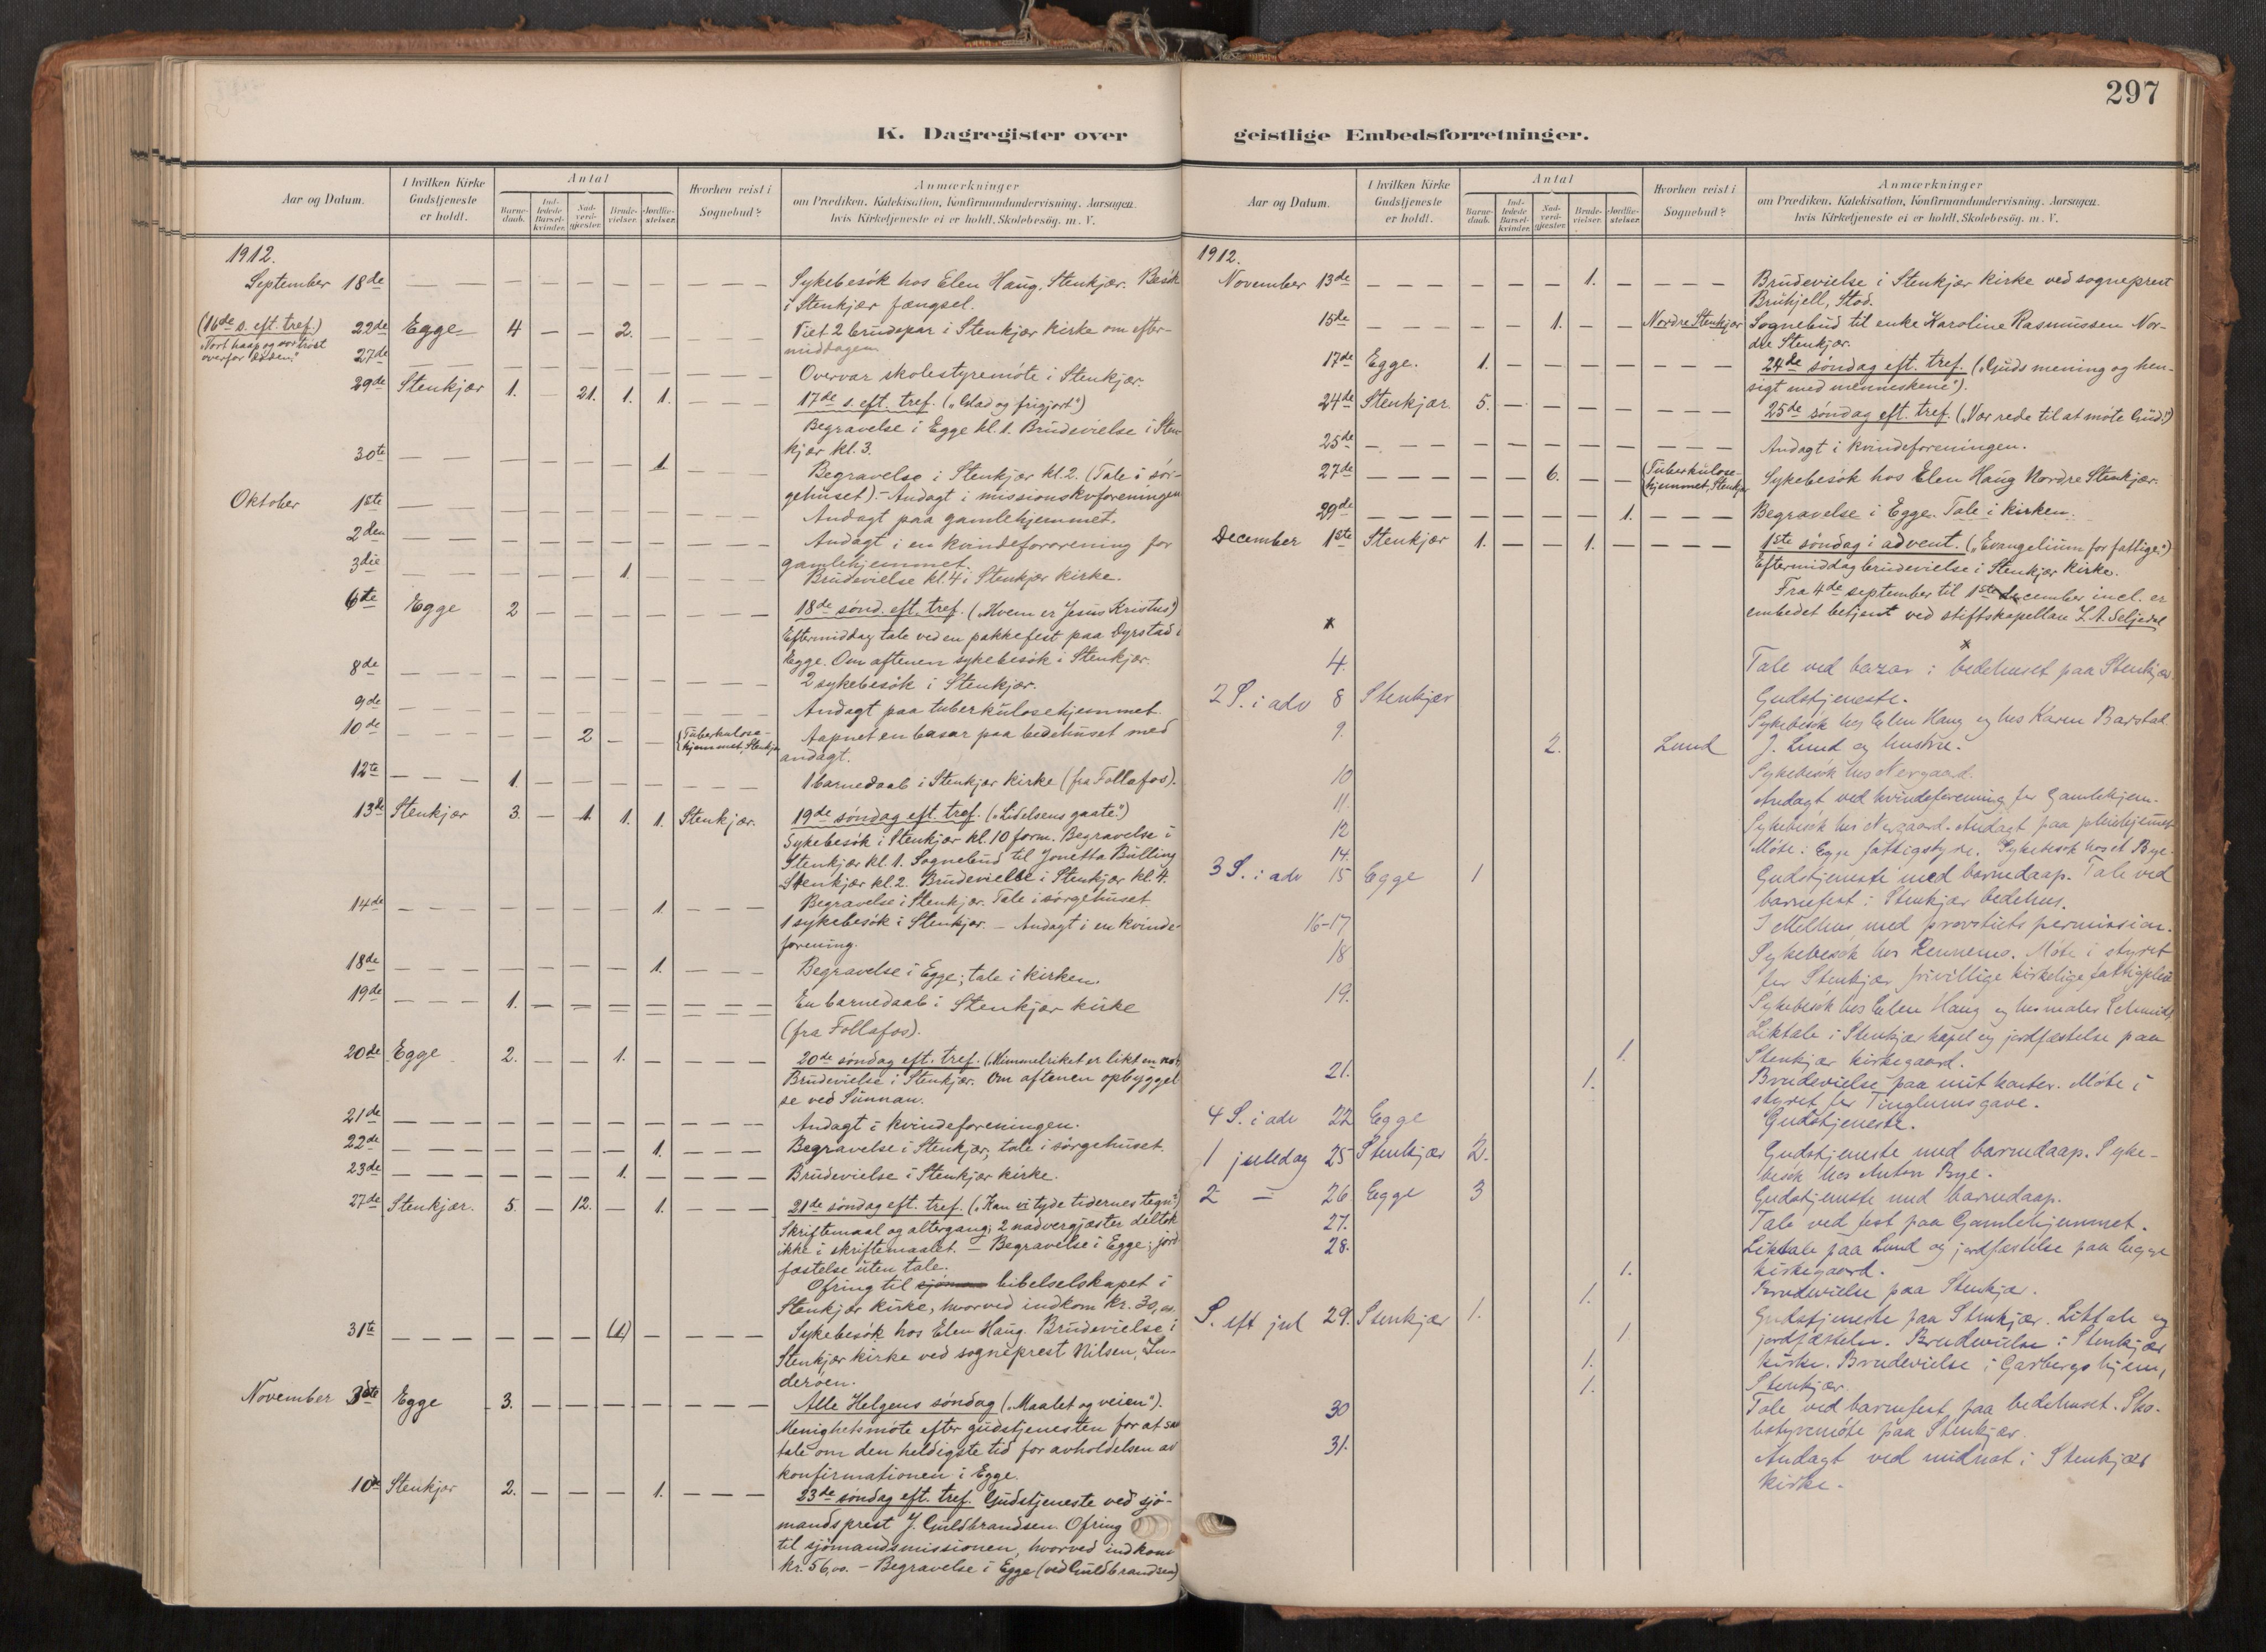 297
K. Dagregister over geistlige Embedsforretninger.
Aar og Datum.
I hvilken Kirke Gudstjeneste er holdt.
Antal
Barne-daab.
Ind-ledede Barsel-kvinder.
Nad-verd-gjester.
Brude-vielser.
Jordfæ-stelser.
Hvorhen reist i Sognebud?
Anmærkninger
om Prædiken, Katekisation, Konfirmandundervisning, Aarsagen,
hvis Kirketjeneste ei er holdt, Skolebesög, m. V.
1912.
September 18de — — — — — — — — — Sykebesök hos Elen Haug, Stenkjær. Besök
i Stenkjær fængsel.
(16de s. eft. tref.) 22de Egge 4 — — 2. — — — — Viet 2 brudepar i Stenkjær kirke om efter-
Vort haap og vor trøst
middagen.
overfor døden."
27de — — — — — — — — Overvar skolestyremöte i Stenkjær.
29de Stenkjær 1. — 21. 1. 1. — — — 17de s. eft. tref. („Glad og frigjort")
Begravelse i Egge kl. 1. Brudevielse i Sten-
kjær kl. 3.
30te — — — — — — 1. — — — Begravelse i Stenkjær kl. 2. (Tale i sör-
gehuset). – Andagt i missionskvforeningen
Oktober 1ste — — — — — — — — Andagt paa gamlehjemmet.
2den — — — — — — — — Andagt i en kvindeforening for
gamlehjemmet.
3die — — — — 1. — — — Brudevielse kl. 4 i Stenkjær kirke.
6te Egge 2 — — — — — — — 18de sönd. eft. tref. („Hvem er Jesus Kristus?)
Eftermiddag tale ved en pakkefest paa Dyrstad i
Egge. Om aftenen sykebesök i Stenkjær.
8de — — — — — — — — 2 sykebesök i Stenkjær.
9de — — — — — — — — Andagt paa tuberkulosehjemmet.
10de — — — — 2 — — Tuberkulose-hjemmet, Stenkjær Aapnet en basar paa bedehuset med
andagt.
12te — — — 1. — — — — — — — 1 barnedaab i Stenkjær kirke (fra Follafos).
13de Stenkjær 3. — 1. 1. 1. Stenkjær. 19de söndag eft. tref. („Lidelsens gaate.")
Sykebesök i Stenkjær kl. 10 form. Begravelse i
Stenkjær kl. 1. Sognebud til Jonetta Bülling
Stenkjær kl. 2. Brudevielse i Stenkjær kl. 4.
14de — — — — — — 1. — — — Begravelse i Stenkjær. Tale i sörgehuset.
1 sykebesök i Stenkjær. – Andagt i en kvinde-
forening.
18de — — — — — — 1. — — — Begravelse i Egge; tale i kirken.
19de — — — 1. — — — — — — — En barnedaab i Stenkjær kirke
(fra Follafos).
20de Egge 2. — — 1. — — — — 20de söndag eft. tref. („Himmelriket er likt en not
Brudevielse i Stenkjær. Om aftenen opbyggel-
se ved Sunnan.
21de — — — — — — — — Andagt i kvindeforeningen.
22de — — — — — — 1. — — — Begravelse i Stenkjær; tale i sörgehuset.
23de — — — — — 1. — — — — Brudevielse i Stenkjær kirke.
27de Stenkjær. 5. — 12. — 1. — — — 21de söndag eft. tref. („Kan vi tyde tidernes tegn?)
Skriftemaal og altergang; 2 nadvergjæster deltok
ikke i skriftemaalet. – Begravelse i Egge; jord-
fæstelse uten tale.
Ofring til bibelselskapet i
Stenkjær kirke, hvorved indkom kr. 30,00.
31te — — — — — (1) — — — — Sykebesök hos Elen Haug. Brudevielse i
Stenkjær kirke ved sogneprest Nilsen, In-
deröen.
November 3die Egge 3. — — — — — — — Alle Helgens söndag („Maalet og veien").
Menighetsmöte efter gudstjenesten for at sam-
tale om den heldigste tid for avholdelsen av
konfirmationen i Egge.
10de Stenkjær 2. — — — 1. — — — 23de söndag eft. tref. Gudstjeneste ved sjö-
mandsprest J. Guldbrandsen. Ofring
til sjömandsmissionen, hvorved indkom
kr. 56,00. – Begravelse i Egge (ved Guldbrandsen)
1912.
November 13de — — — — — — 1. — — — — Brudevielse i Stenkjær kirke ved sogneprest
Brukjell, Stod.
15de — — — — — — 1. — — Nordre Stenkjær Sognebud til enke Karoline Rasmussen Nor-
dre Stenkjær.
17de Egge. 1. — — — — — — — 24de söndag eft. tref. („Guds mening og hen-
sigt med menneskene").
24de Stenkjær. 5. — — — — — — — 25de söndag eft. tref. („Vær rede til at möte Gud!")
25de — — — — — — — — Andagt i kvindeforeningen.
27de — — — — — 6. — — Tuberkulose-hjemmet, Stenkjær Sykebesök hos Elen Haug Nordre Stenkjær.
29de — — — — — — — 1. — — — Begravelse i Egge. Tale i kirken.
December 1ste Stenkjær 1. — — 1. — — — — 1ste söndag i advent. („Evangelium for fattige.")
Eftermiddag brudevielse i Stenkjær kirke.
Fra 4de september til 1ste december incl. er
embedet betjent ved stiftskapellan L. A. Seljedal
4. Tale ved bazar i bedehuset paa Stenkjær
2 S. i adv 8 Stenkjær Gudstjeneste.
9. Sykebesök hos Elen Haug og hos Karen Barstad
2. Lund J. Lund og hustru.
10 Sykebesök hos Nergaard.
11. Andagt ved kvindeforening for Gamlehjem.
12 Sykebesök hos Nergaard. Andagt paa pleiehjemmet
14. Möte i Egge fattigstyre. Sykebesök hos et Bye.
3 S. i adv 15 Egge 1 Gudstjeneste med barnedaap. Tale ved
barnefest i Stenkjær bedehus.
16-17 I Melhus med provstiets permission.
18 Sykebesök hos Rennemo. Möte i styret
for Stenkjær frivillige kirkelige fattigpleie
19. Sykebesök hos Elen Haug og hos maler Schmidt
1. Liktale i Stenkjær kapel og jordfæstelse paa
Stenkjær kirkegaard.
21. 1. Brudevielse paa mit kontor. Möte i
styret for Tinglumsgave.
4 S. i adv 22 Egge Gudstjeneste.
1 juledag 25 Stenkjær 2. Gudstjeneste med barnedaap. Syke-
besök hos Anton Bye.
2 — 26 Egge 3 Gudstjeneste med barnedaap.
27. Tale ved fest paa Gamlehjemmet.
28. Liktale paa Lund og jordfæstelse paa Egge
1. kirkegaard.
1. Brudevielse paa Stenkjær.
S. eft jul 29. Stenkjær 1. Gudstjeneste paa Stenkjær. Liktale og
1. jordfæstelse. Brudevielse i Stenkjær
1. kirke. Brudevielse i Garbergs hjem,
1. Stenkjær.
30 Tale ved barnefest paa bedehuset. Sko-
lestyremöte paa Stenkjær.
31. Andagt ved midnat i Stenkjær
kirke.